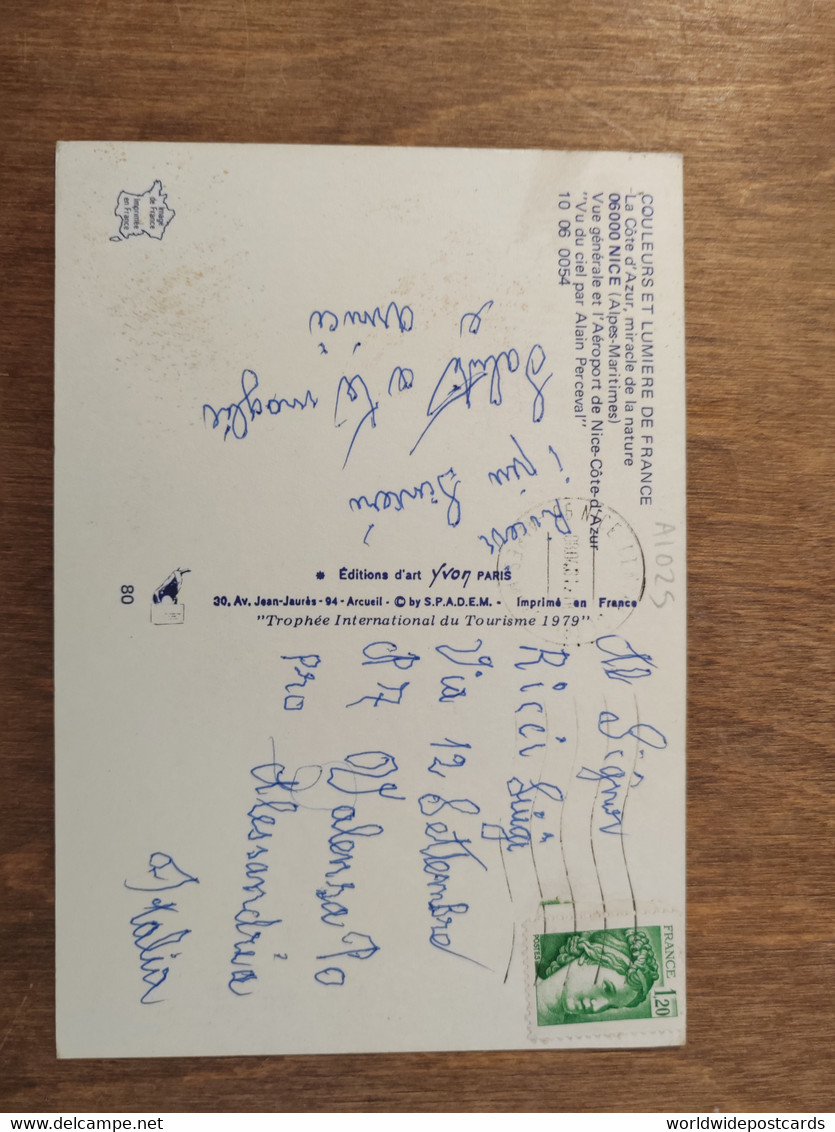 COULEURS ET LUMIERE DE FRANCE
La Côte d'Azur, miracle de la nature
06000 NICE (Alpes-Maritimes)
Vue générale et l'Aéroport de Nice-Côte-d'Azur
"Vu du ciel par Alain Perceval"
10 06 0054
A1025
Ricevi
i più Sinceri
Saluti
e
a te
amici
moglie
Image
de France
Imprimée
en France
* Éditions d'art Yvon PARIS
30, Av. Jean-Jaurès - 94 - Arcueil - © by S.P.A.D.E.M. - Imprimé en France
"Trophée International du Tourisme 1979"
80
NICE
FRANCE
1,20
POSTES
Al Signor
Ricci Luigi
Via 12 Settembre
CP 7 Valenza Po
pro Alessandria
Italia
delcampe.net
worldwidepostcards